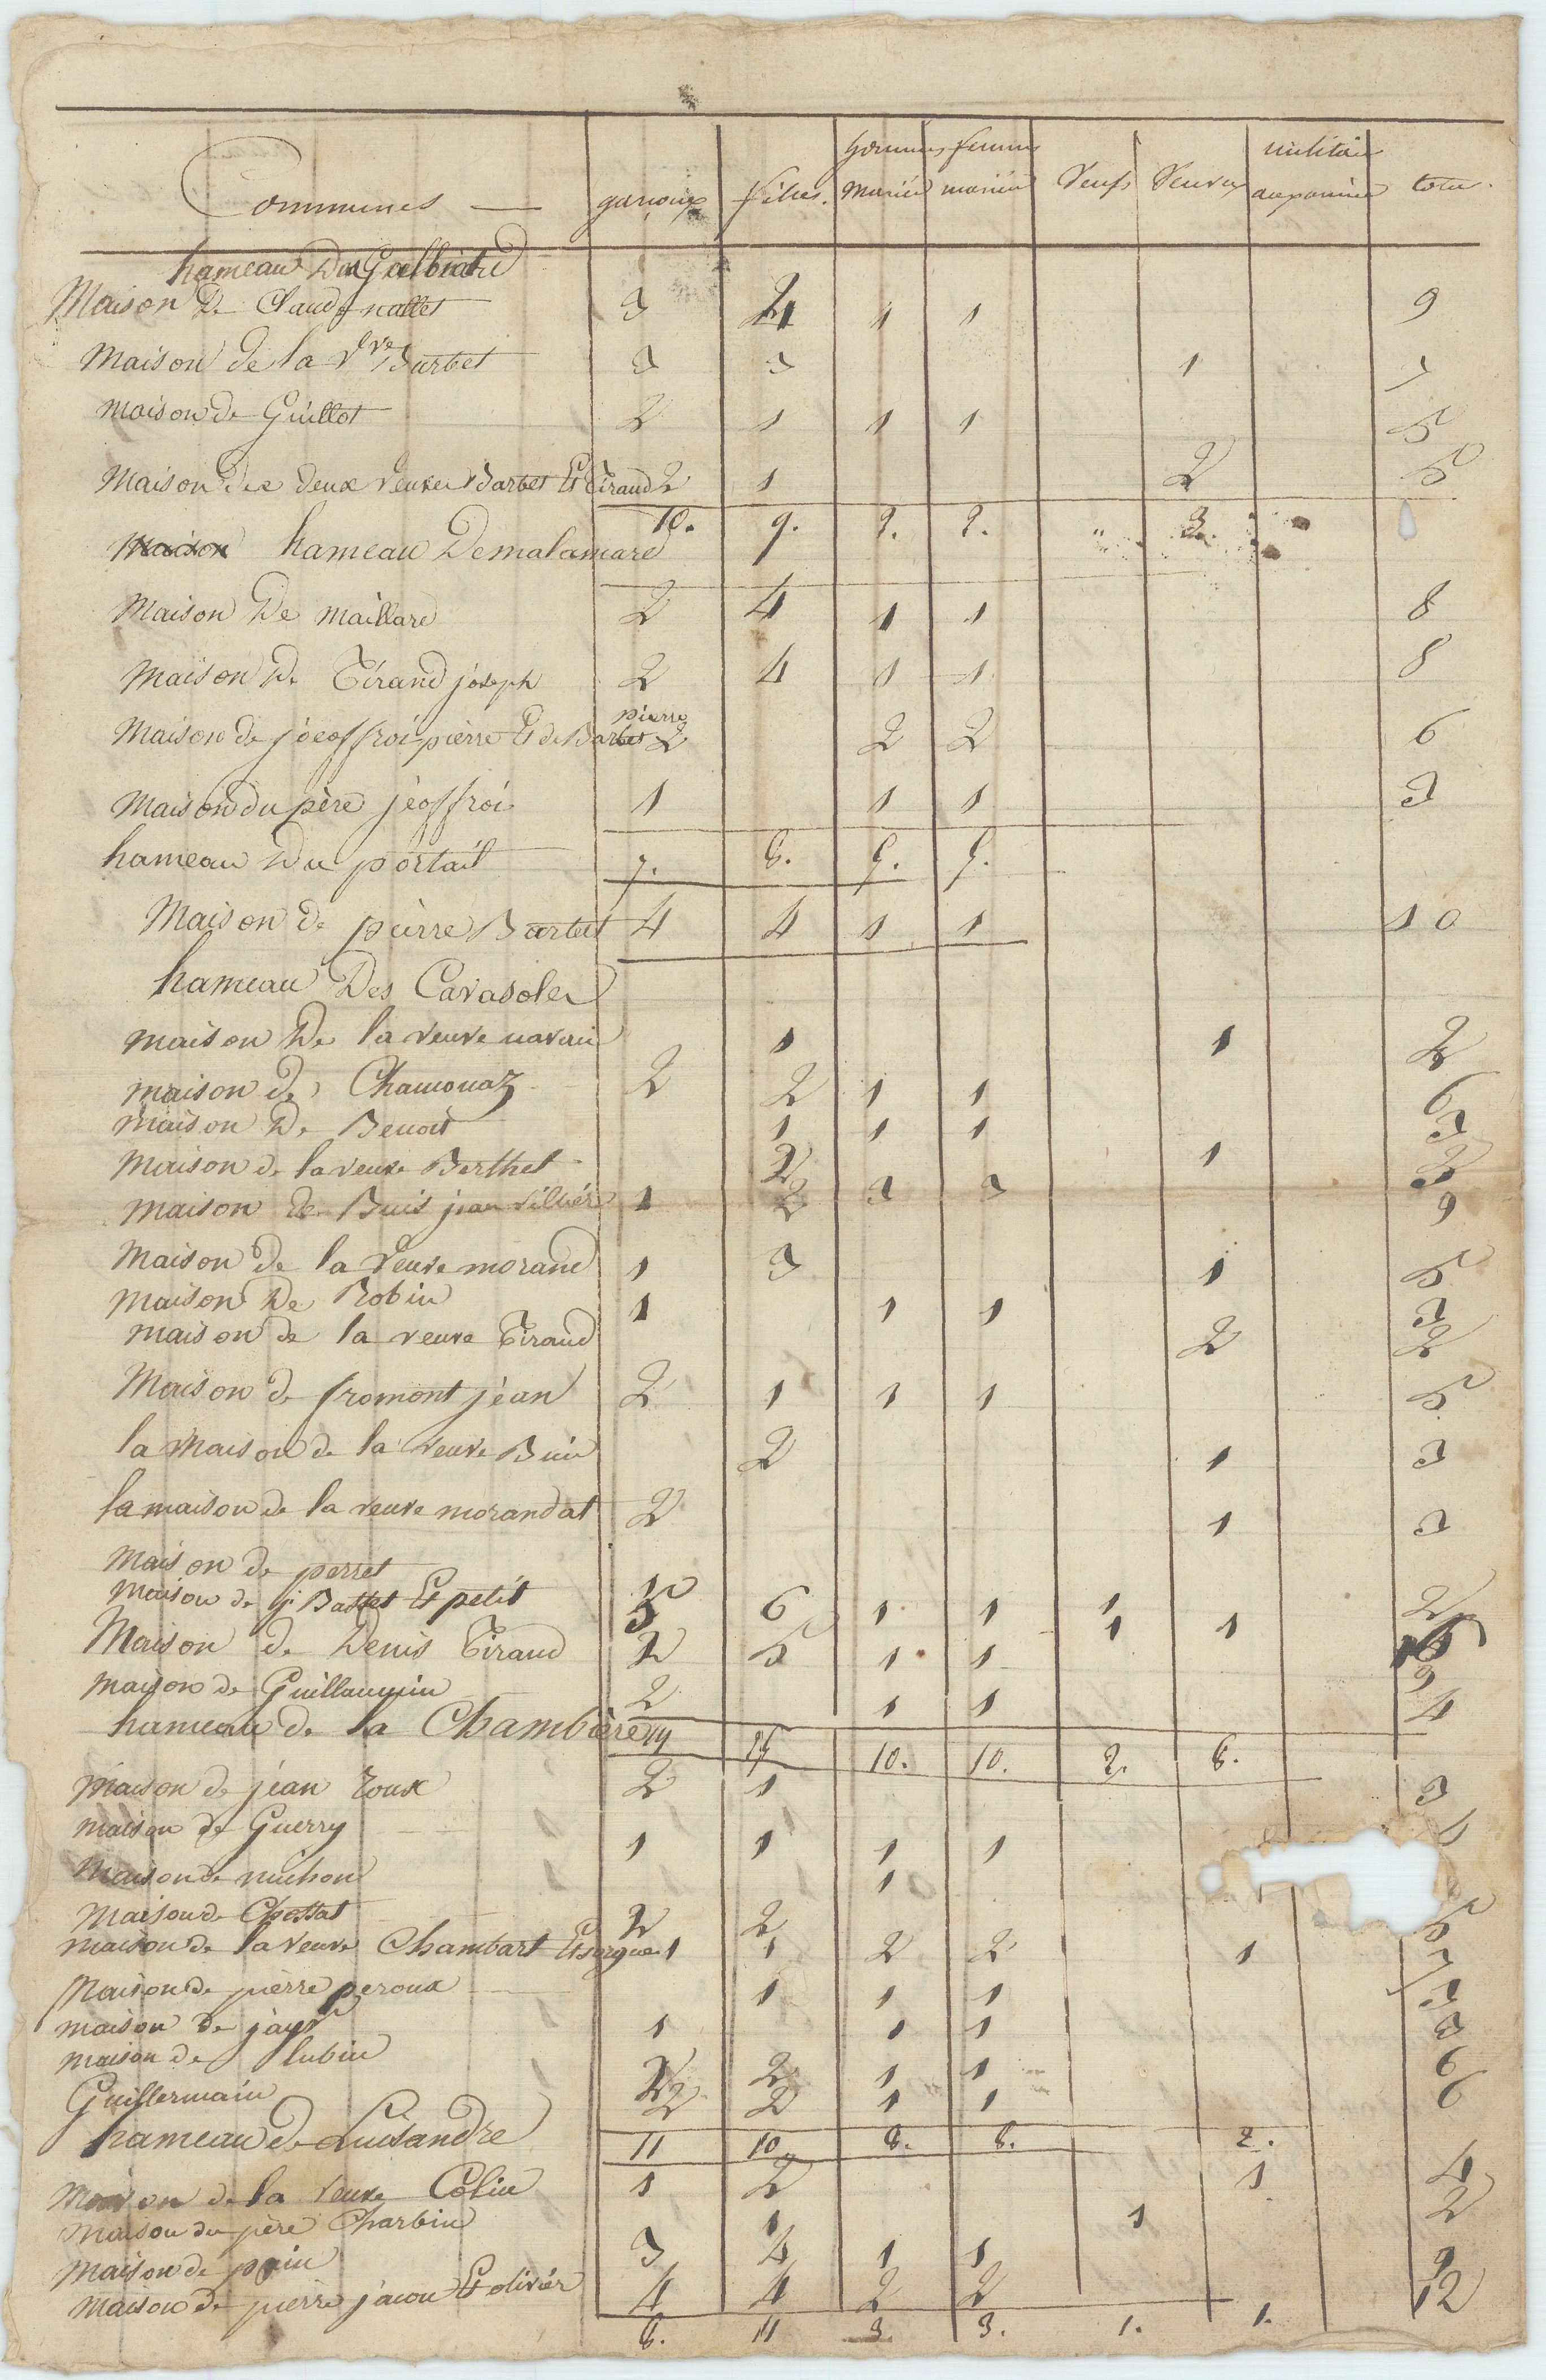 Communes — garçons filles. hommes mariés femmes mariées Veufs Veuves militaire total.
hameau Du Galbiard
Maison De Claude nallet 3 4 1 1 9
Maison de la Vve Barbet 3 3 1 7
maison de Guillot 2 1 1 1 5
Maison des deux veuves Barbet Et Tirand 2 1 2 5
10. 9. 2. 2. " 3.
Maison hameau Demalamard
Maison De maillard 2 4 1 1 8
Maison De Tirand joseph 2 4 1 1 8
Maison de jéoffroi pierre Et de Barbet pierre 2 2 2 6
Maison du père jéoffroi 1 1 1 3
hameau Du portail 7. 8. 5. 5.
Maison de pierre Barbet 4 4 1 1 10
hameau Des Cavasoles
maison De la veuve 1 1 2
maison de Chamouaz 2 2 1 1 6
maison De Benoit 1 1 1 3
Maison de la veuve Berthet 2 1 3
maison de Buis jean villiér 1 2 3 3 9
Maison de la veuve morand 1 3 1 5
maison De Robin 1 1 1 3
maison de la veuve Tirand 2 2
Maison de fromont jean 2 1 1 1 5
la Maison de la veuve Buis 2 1 3
la maison de la veuve morandat 2 1 3
Maison de perret
maison de j. Battet Et petit 5 6 1 1 1 1 1
Maison de Denis Tirand 2 5 1 1 9
maison de Guillaumin 2 1 1 4
hameau de la Chambière 10. 10. 2. 8.
Maison de jean roux 2 1 3
maison de Guerry 1 1 1 1
Maison de michon 1
Maison de Chossat 2 2 5
maison de la veuve Chambart Et 1 1 2 2 1 7
Maison de pierre peroux 1 1 1 3
maison de jayr 1 1 1 3
maison de lubin 2 2 1 1 6
Guillermain 2 2 1 1 6
hameau de Luisandre 11 10 8. 8. 2.
Maison de la veuve Colin 1 2 1 4
maison du père Charbin 1 1 2
Maison de pain 3 4 1 1 9
maison de pierre jacou Et olivier 4 4 2 2 12
8. 11 3. 3. 1. 1.